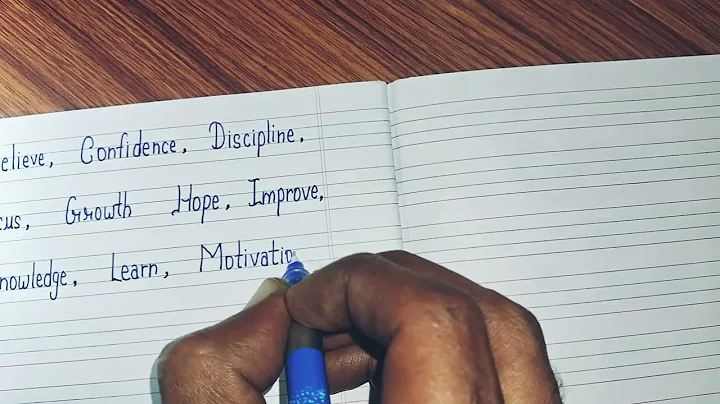 elieve, Confidence, Discipline,
cus, Growth Hope, Improve,
nowledge, Learn, Motivatio